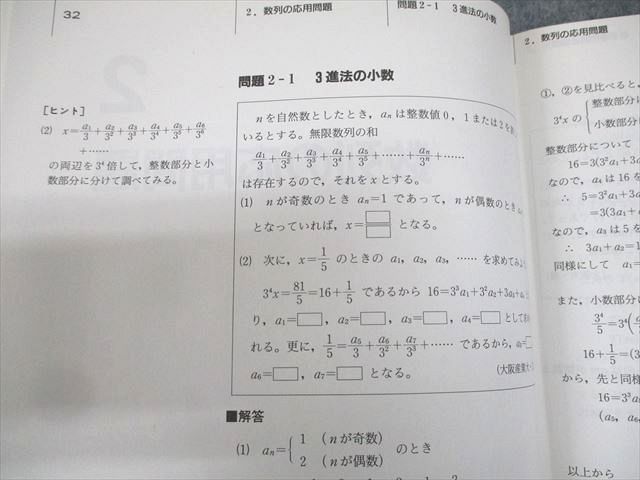 32
2. 数列の応用問題
問題2-1 3進法の小数
問題2-1 3進法の小数
[ヒント]
(2) x=a₁/3+a₂/3²+a₃/3³+a₄/3⁴+a₅/3⁵+a₆/3⁶
+……
の両辺を3⁴倍して，整数部分と小
数部分に分けて調べてみる。
nを自然数としたとき，aₙは整数値0，1または2を
いるとする。無限数列の和
a₁/3+a₂/3²+a₃/3³+a₄/3⁴+a₅/3⁵+……+aₙ/3ⁿ+……
は存在するので，それをxとする。
(1) nが奇数のとき aₙ=1 であって，nが偶数のとき
となっていれば，x=□/□ となる。
(2) 次に，x=1/5 のときの a₁, a₂, a₃, …… を求めてみ
3⁴x=81/5=16+1/5 であるから 16=3³a₁+3²a₂+3a₃+a₄
り，a₁=□，a₂=□，a₃=□，a₄=□ として
れる。更に，1/5=a₅/3+a₆/3²+a₇/3³+…… であるから，a₅=
a₆=□，a₇=□ となる。
(大阪産業大
■解答
(1) aₙ={1 (nが奇数)
2 (nが偶数) のとき
2. 数列の応用問題
①，②を見比べると，
3⁴xの{整数部分
小数部分
整数部分について
16=3(3²a₁+3a
なので，a₄は16を
∴ 5=3²a₁+3a
=3(3a₁+
なので，a₃は5を
∴ 3a₁+a₂=1
同様にして a₁=
また，小数部分に
3⁴/5=3⁴(
16+1/5=(3
から，先と同様
16=3³
(a₅, a₆,
以上から